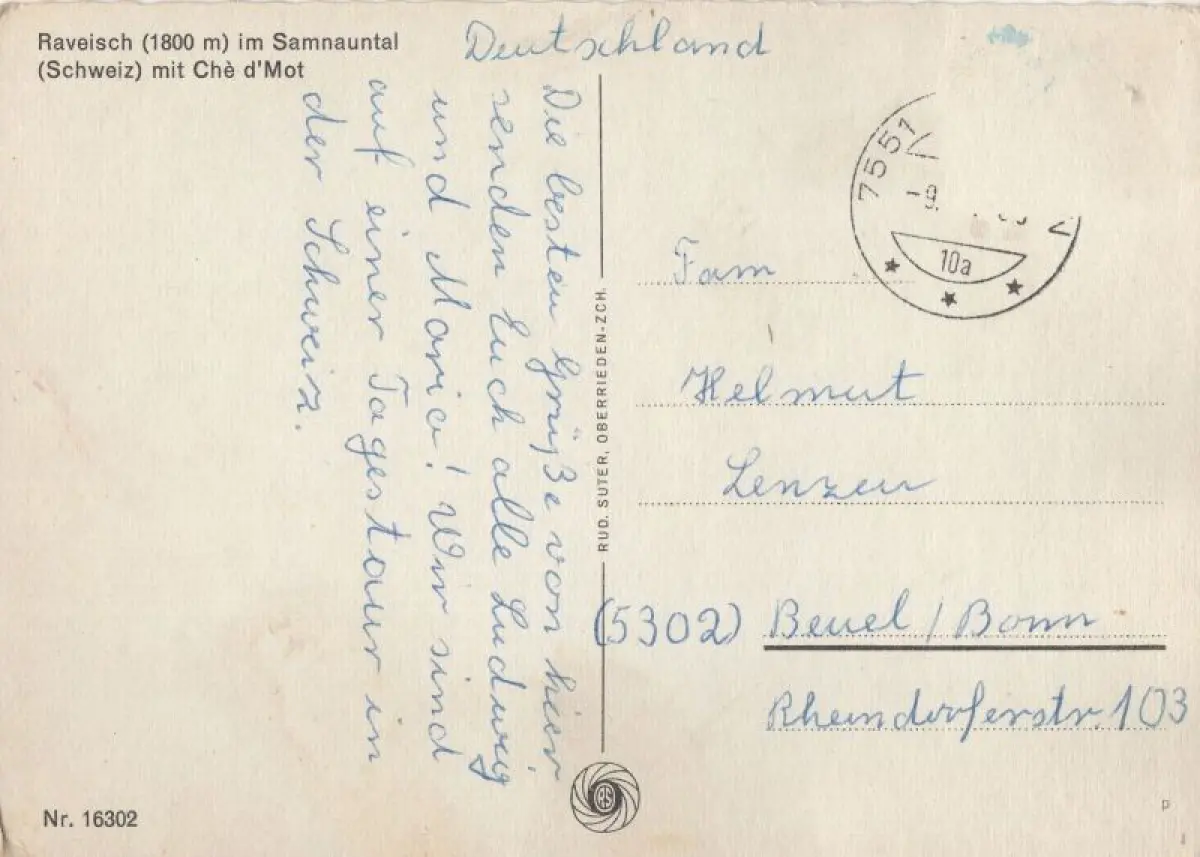 Raveisch (1800 m) im Samnauntal
(Schweiz) mit Chè d'Mot
Deutschland
Die besten Grüße von hier
senden Euch alle Ludwig
und Maria! Wir sind
auf einer Tagestour in
der Schweiz.
RUD. SUTER, OBERRIEDEN-ZCH.
7551
-9.
10a
Fam
Helmut
Lenzen
(5302) Beuel / Bonn
Rheindorferstr. 103
Nr. 16302
P